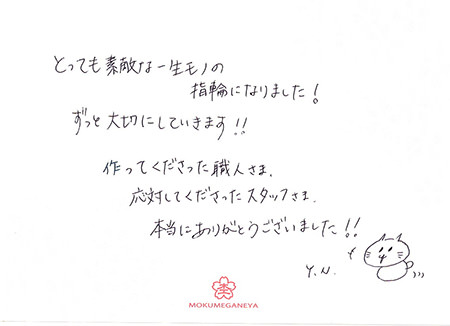 とっても素敵な一生モノの
指輪になりました!
ずっと大切にしていきます!!
作ってくださった職人さま、
応対してくださったスタッフさま、
本当にありがとうございました!!
Y.N.
MOKUMEGANEYA